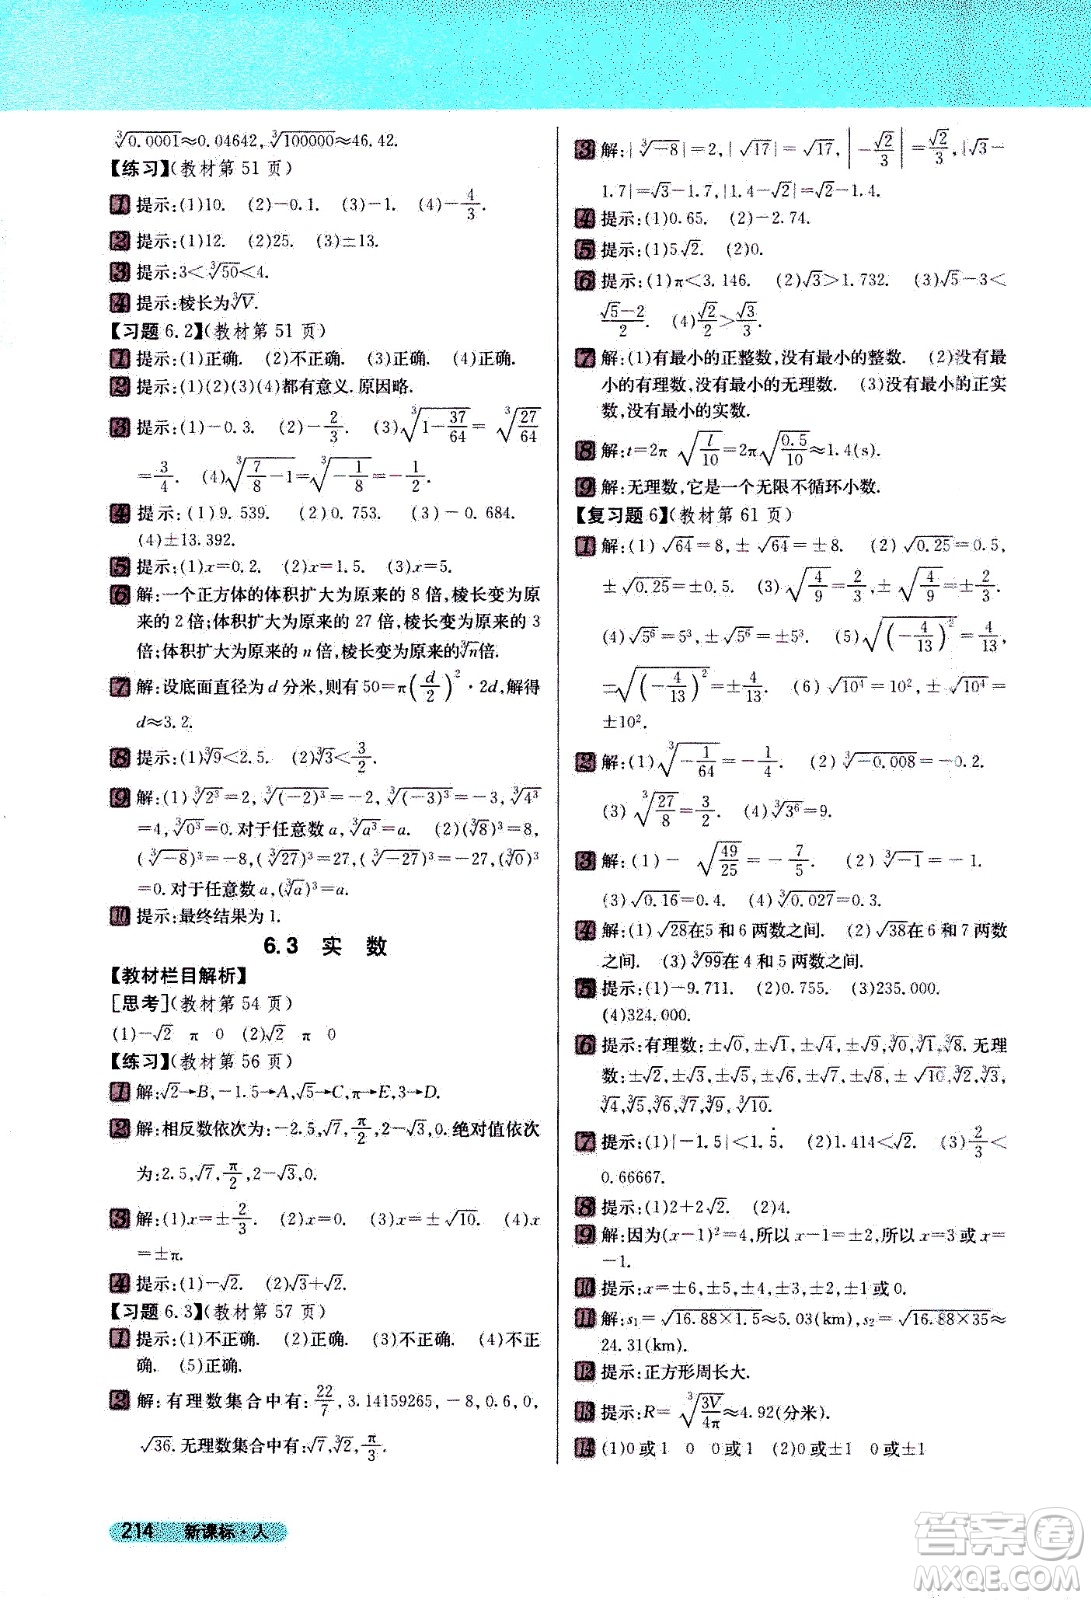 ∛0.0001≈0.04642,∛100000≈46.42.
【练习】(教材第 51 页)
1 提示:(1)10. (2)-0.1. (3)-1. (4)-4/3.
2 提示:(1)12. (2)25. (3)±13.
3 提示:3<∛50<4.
4 提示:棱长为∛V.
【习题 6.2】(教材第 51 页)
1 提示:(1)正确. (2)不正确. (3)正确. (4)正确.
2 提示:(1)(2)(3)(4)都有意义.原因略.
3 提示:(1)-0.3. (2)-2/3. (3)∛(1-37/64)=∛(27/64)
=3/4. (4)∛(7/8-1)=∛(-1/8)=-1/2.
4 提示:(1)9.539. (2)0.753. (3)-0.684.
(4)±13.392.
5 提示:(1)x=0.2. (2)x=1.5. (3)x=5.
6 解:一个正方体的体积扩大为原来的 8 倍,棱长变为原
来的 2 倍;体积扩大为原来的 27 倍,棱长变为原来的 3
倍;体积扩大为原来的 n 倍,棱长变为原来的∛n倍.
7 解:设底面直径为 d 分米,则有 50=π(d/2)²·2d,解得
d≈3.2.
8 提示:(1)∛9<2.5. (2)∛3<3/2.
9 解:(1)∛2³=2,∛(-2)³=-2,∛(-3)³=-3,∛4³
=4,∛0³=0.对于任意数 a,∛a³=a. (2)(∛8)³=8,
(∛-8)³=-8,(∛27)³=27,(∛-27)³=-27,(∛0)³
=0.对于任意数 a,(∛a)³=a.
10 提示:最终结果为 1.
6.3 实 数
【教材栏目解析】
[思考](教材第 54 页)
(1)-√2 π 0 (2)√2 π 0
【练习】(教材第 56 页)
1 解:√2→B,-1.5→A,√5→C,π→E,3→D.
2 解:相反数依次为:-2.5,√7,π/2,√3-2,0.绝对值依次
为:2.5,√7,π/2,2-√3,0.
3 解:(1)x=±2/3. (2)x=0. (3)x=±√10. (4)x
=±π.
4 提示:(1)-√2. (2)√3+√2.
【习题 6.3】(教材第 57 页)
1 提示:(1)不正确. (2)正确. (3)正确. (4)不正
确. (5)正确.
2 解:有理数集合中有:22/7,3.14159265,-8,0.6,0,
√36.无理数集合中有:√7,∛2,π/3.
3 解:|∛-8|=2,|√17|=√17,|-√2/3|=√2/3,|√3-
1.7|=√3-1.7,|1.4-√2|=√2-1.4.
4 提示:(1)0.65. (2)-2.74.
5 提示:(1)5√2. (2)0.
6 提示:(1)π<3.146. (2)√3>1.732. (3)√5-3<
(√5-2)/2. (4)√2/2>√3/3.
7 解:(1)有最小的正整数,没有最小的整数. (2)没有最
小的有理数,没有最小的无理数. (3)没有最小的正实
数,没有最小的实数.
8 解:t=2π√(l/10)=2π√(0.5/10)≈1.4(s).
9 解:无理数,它是一个无限不循环小数.
【复习题 6】(教材第 61 页)
1 解:(1)√64=8,±√64=±8. (2)√0.25=0.5,
±√0.25=±0.5. (3)√(4/9)=2/3,±√(4/9)=±2/3.
(4)√5⁶=5³,±√5⁶=±5³. (5)√(-4/13)²=4/13,±
√(-4/13)²=±4/13. (6)√10⁴=10²,±√10⁴=
±10².
2 解:(1)∛(-1/64)=-1/4. (2)∛-0.008=-0.2.
(3)∛(27/8)=3/2. (4)∛3⁶=9.
3 解:(1)-√(49/25)=-7/5. (2)∛-1=-1.
(3)√0.16=0.4. (4)∛0.027=0.3.
4 解:(1)√28在5 和 6 两数之间. (2)√38在6 和 7 两数
之间. (3)∛99在 4 和 5 两数之间.
5 提示:(1)-9.711. (2)0.755. (3)235.000.
(4)324.000.
6 提示:有理数:±√0,±√1,±√4,±√9,∛0,∛1,∛8.无理
数:±√2,±√3,±√5,±√6,±√7,±√8,∛2,∛3,
∛4,∛5,∛6,∛7,∛9,∛10.
7 提示:(1)|-1.5|<1.5̇. (2)1.414<√2. (3)2/3<
0.66667.
8 提示:(1)2+2√2. (2)4.
9 解:因为(x-1)²=4,所以 x-1=±2,所以 x=3 或 x=
-1.
10 提示:x=±6,±5,±4,±3,±2,±1 或 0.
11 解:s₁=√16.88×1.5≈5.03(km),s₂=√16.88×35≈
24.31(km).
12 提示:正方形周长大.
13 提示:R=∛(3V/4π)≈4.92(分米).
14 (1)0 或 1 0 0 或 1 (2)0 或±1 0 或±1
214 新课标·人
答案圈
MXQE.COM